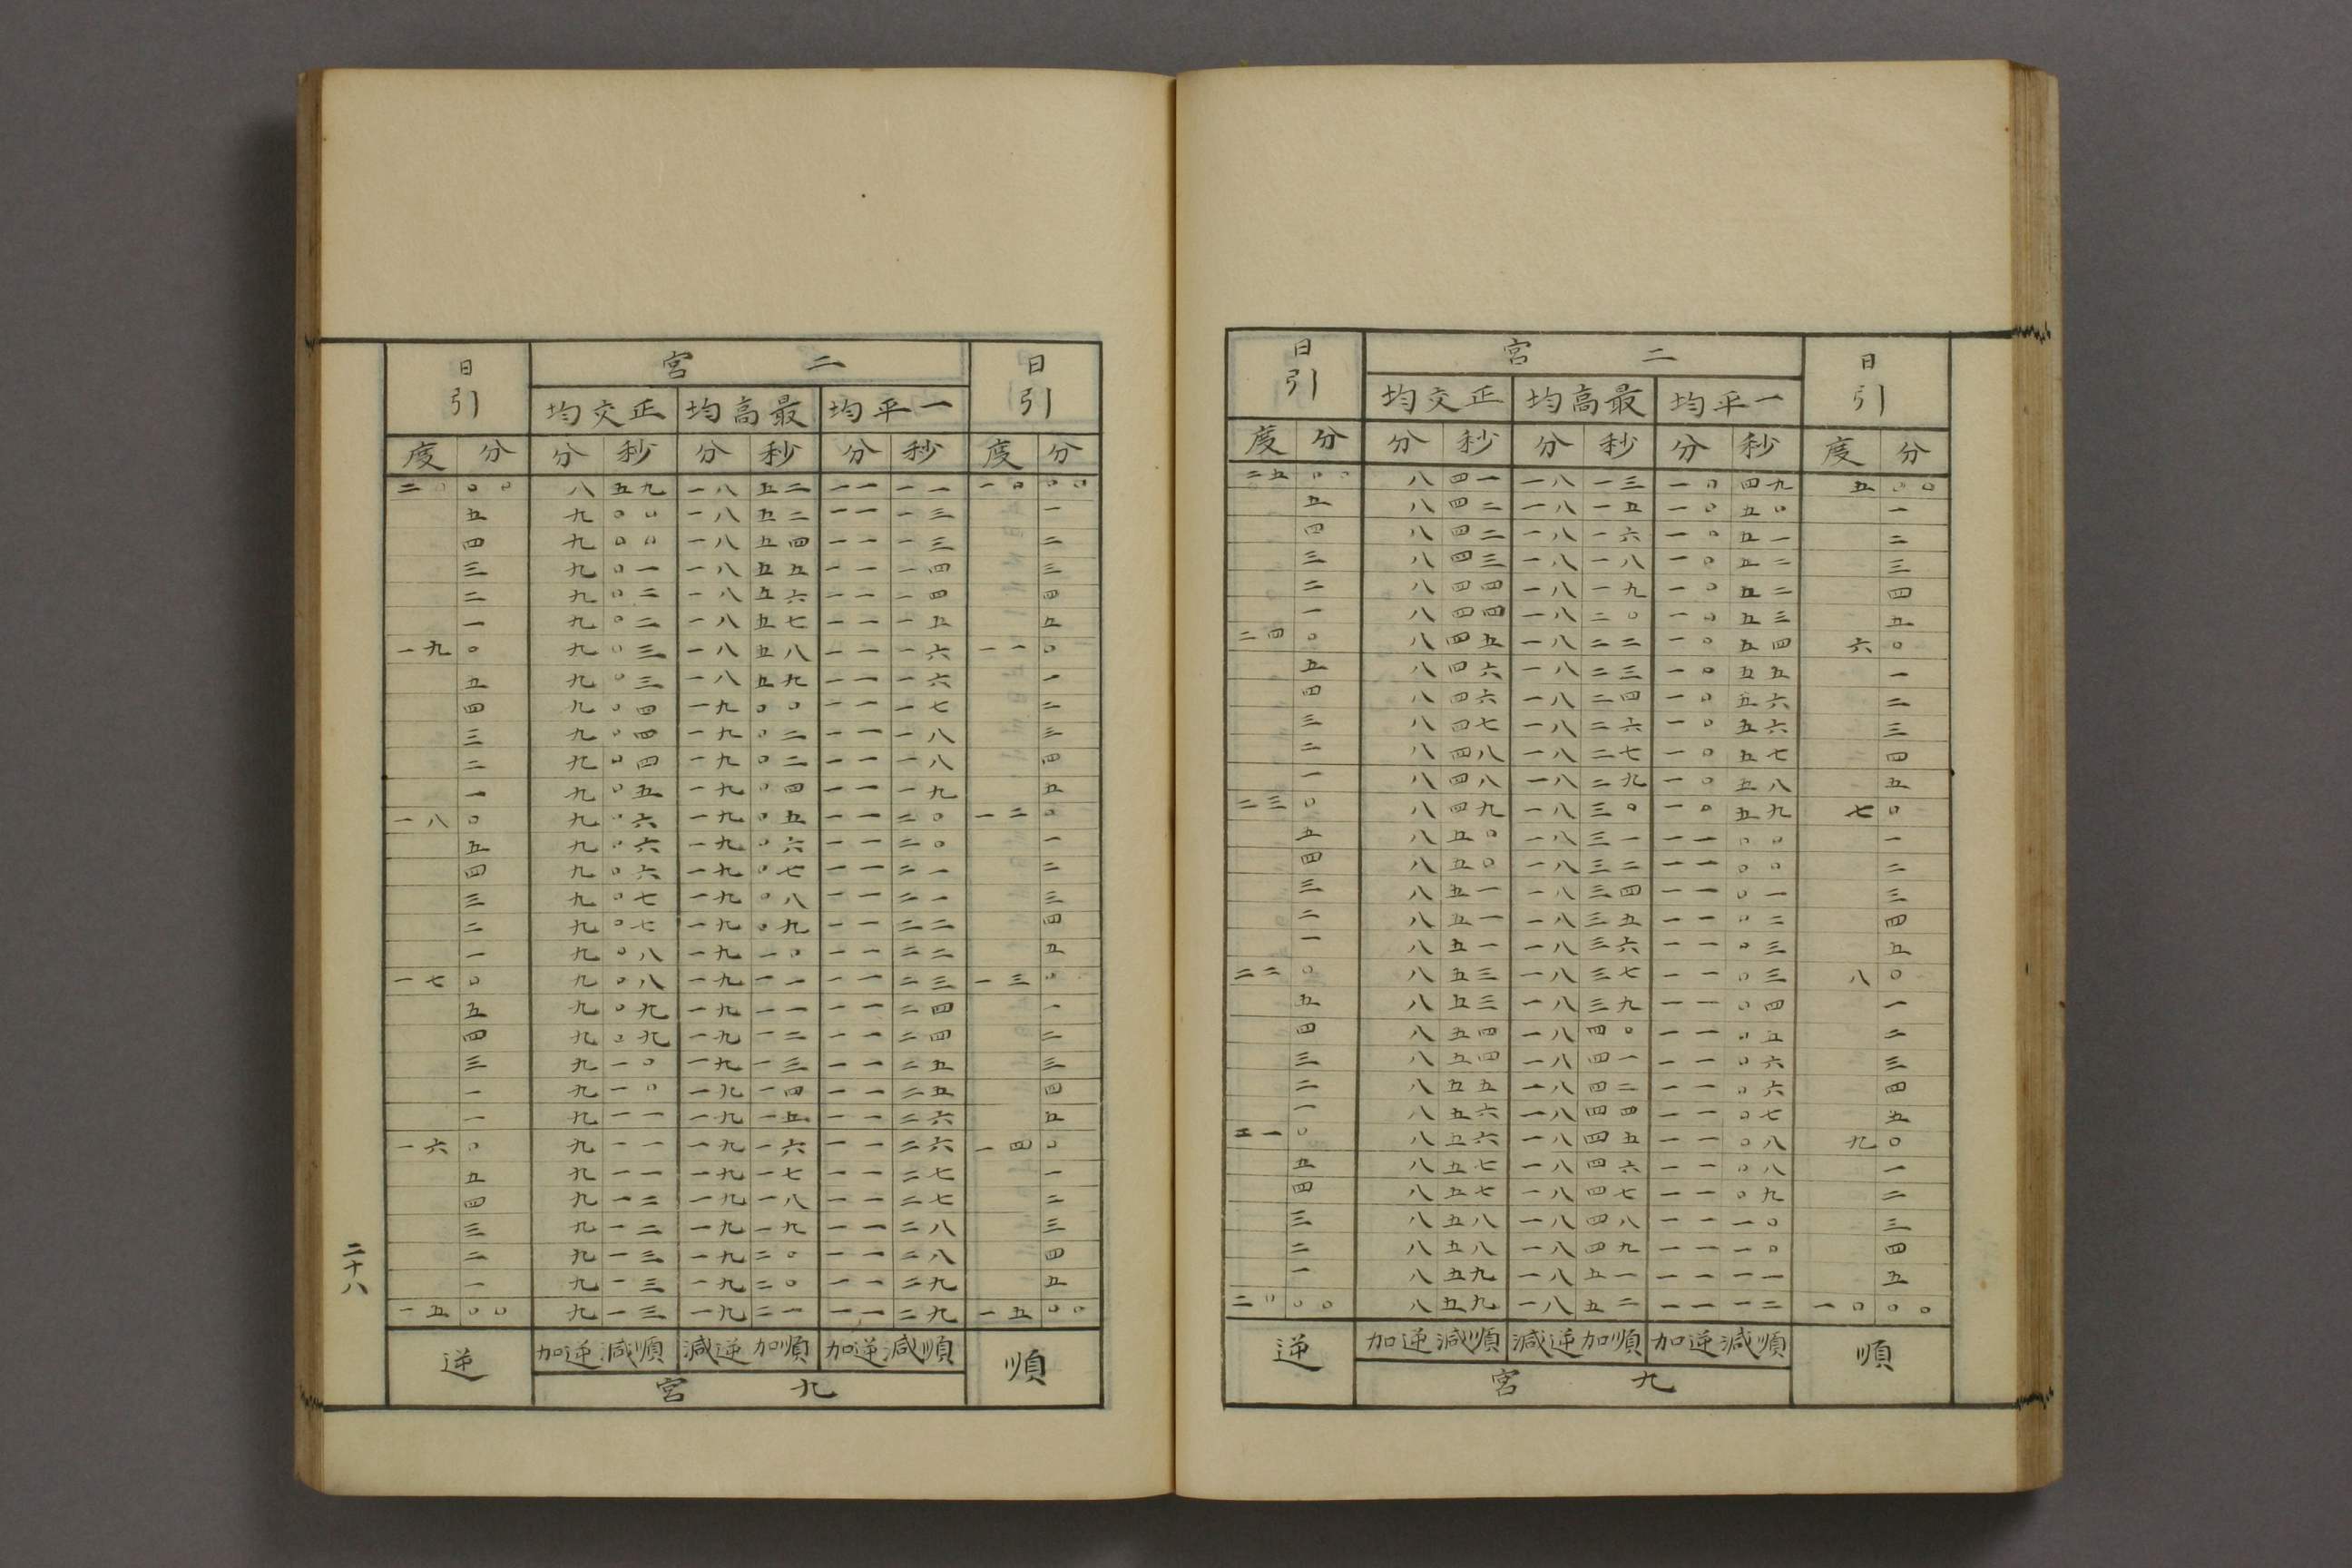 日引 二宮 日引
一平均 最高均 正交均
度 分 分 秒 分 秒 分 秒 度 分
二五 〇〇 八 四一 一八 一三 一〇 四九 五 〇〇
五 八 四二 一八 一五 一〇 五〇 一
四 八 四二 一八 一六 一〇 五一 二
三 八 四三 一八 一八 一〇 五二 三
二 八 四四 一八 一九 一〇 五二 四
一 八 四四 一八 二〇 一〇 五三 五
二四 〇 八 四五 一八 二二 一〇 五四 六 〇
五 八 四六 一八 二三 一〇 五五 一
四 八 四六 一八 二四 一〇 五六 二
三 八 四七 一八 二六 一〇 五六 三
二 八 四八 一八 二七 一〇 五七 四
一 八 四八 一八 二九 一〇 五八 五
二三 〇 八 四九 一八 三〇 一〇 五九 七 〇
五 八 五〇 一八 三一 一一 〇〇 一
四 八 五〇 一八 三二 一一 〇〇 二
三 八 五一 一八 三四 一一 〇一 三
二 八 五一 一八 三五 一一 〇二 四
一 八 五一 一八 三六 一一 〇三 五
二二 〇 八 五三 一八 三七 一一 〇三 八 〇
五 八 五三 一八 三九 一一 〇四 一
四 八 五四 一八 四〇 一一 〇五 二
三 八 五四 一八 四一 一一 〇六 三
二 八 五五 一八 四二 一一 〇六 四
一 八 五六 一八 四四 一一 〇七 五
二一 〇 八 五六 一八 四五 一一 〇八 九 〇
五 八 五七 一八 四六 一一 〇八 一
四 八 五七 一八 四七 一一 〇九 二
三 八 五八 一八 四八 一一 一〇 三
二 八 五八 一八 四九 一一 一〇 四
一 八 五九 一八 五一 一一 一一 五
二〇 〇〇 八 五九 一八 五二 一一 一二 一〇 〇〇
順 順減逆加 順加逆減 順減逆加 逆
九宮
日引 二宮 日引
一平均 最高均 正交均
度 分 分 秒 分 秒 分 秒 度 分
二〇 〇〇 八 五九 一八 五二 一一 一一 一〇 〇〇
五 九 〇〇 一八 五二 一一 一三 一
四 九 〇〇 一八 五四 一一 一三 二
三 九 〇一 一八 五五 一一 一四 三
二 九 〇二 一八 五六 一一 一四 四
一 九 〇二 一八 五七 一一 一五 五
一九 〇 九 〇三 一八 五八 一一 一六 一一 〇
五 九 〇三 一八 五九 一一 一六 一
四 九 〇四 一九 〇〇 一一 一七 二
三 九 〇四 一九 〇二 一一 一八 三
二 九 〇四 一九 〇二 一一 一八 四
一 九 〇五 一九 〇四 一一 一九 五
一八 〇 九 〇六 一九 〇五 一一 二〇 一二 〇
五 九 〇六 一九 〇六 一一 二〇 一
四 九 〇六 一九 〇七 一一 二一 二
三 九 〇七 一九 〇八 一一 二一 三
二 九 〇七 一九 〇九 一一 二二 四
一 九 〇八 一九 一〇 一一 二二 五
一七 〇 九 〇八 一九 一一 一一 二三 一三 〇
五 九 〇九 一九 一一 一一 二四 一
四 九 〇九 一九 一二 一一 二四 二
三 九 一〇 一九 一三 一一 二五 三
一 九 一〇 一九 一四 一一 二五 四
一 九 一一 一九 一五 一一 二六 五
一六 〇 九 一一 一九 一六 一一 二六 一四 〇
五 九 一一 一九 一七 一一 二七 一
四 九 一二 一九 一八 一一 二七 二
三 九 一二 一九 一九 一一 二八 三
二 九 一三 一九 二〇 一一 二八 四
一 九 一三 一九 二〇 一一 二九 五
一五 〇〇 九 一三 一九 二一 一一 二九 一五 〇〇
順 順減逆加 順加逆減 順減逆加 逆
九宮
二十八